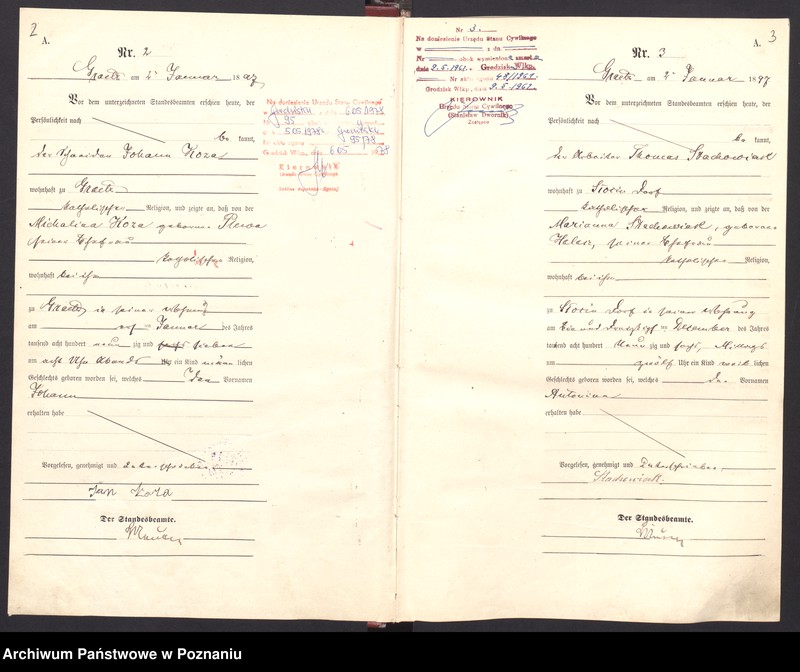 2
A.
Nr. 2
Graetz am 2ten Januar 1897
Vor dem unterzeichneten Standesbeamten erschien heute, der
Persönlichkeit nach
be kannt,
der Schneider Johann Koza
wohnhaft zu Graetz
katholischer Religion, und zeigte an, daß von der
Michalina Koza geborene
seiner Ehefrau
katholischer Religion,
wohnhaft bei ihm
zu Graetz in seiner Wohnung
am ten Januar des Jahres
tausend acht hundert neun zig und sieben
um acht Uhr Abends Uhr ein Kind männ lichen
Geschlechts geboren worden sei, welches den Vornamen
Johann
erhalten habe
Vorgelesen, genehmigt und unterschrieben
Jan Koza
Der Standesbeamte.
Na doniesienie Urzędu Stanu Cywilnego
6.05.1978
95
5.05.1978
95/78
Grodzisk Wlkp., dnia 6.05 1978
Kierownik
Nr 3.
Na doniesienie Urzędu Stanu Cywilnego
w z dn.
Nr obok wymieniona zmarła
dnia 9.5.1962. Grodzisku Wlkp.
Nr aktu zgonu 48/1962.
Grodzisk Wlkp., dnia 9.5.1962.
KIEROWNIK
Urzędu Stanu Cywilnego
(Stanisław Dwornik)
Zastępca
3
A.
Nr. 3
Graetz am 2ten Januar 1897
Vor dem unterzeichneten Standesbeamten erschien heute, der
Persönlichkeit nach
be kannt,
der Arbeiter Thomas Stachowiak
wohnhaft zu Dorf
katholischer Religion, und zeigte an, daß von der
Marianna Stachowiak, geborene
seiner Ehefrau
katholischer Religion,
wohnhaft bei ihm
zu Dorf in seiner Wohnung
am ein und dreißigsten Dezember des Jahres
tausend acht hundert neun zig und sechs, Mittags
um zwölf Uhr ein Kind weib lichen
Geschlechts geboren worden sei, welches den Vornamen
Antonina
erhalten habe
Vorgelesen, genehmigt und unterschrieben
Stachowiak.
Der Standesbeamte.
Archiwum Państwowe w Poznaniu